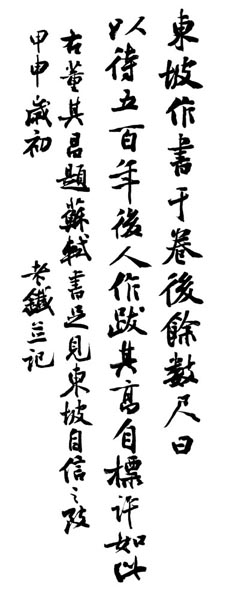 東坡作書于卷後餘數尺曰
以待五百年後人作跋其高自標許如此
右董其昌題蘇軾書足見東坡自信之
甲申歲初 老鐵並記